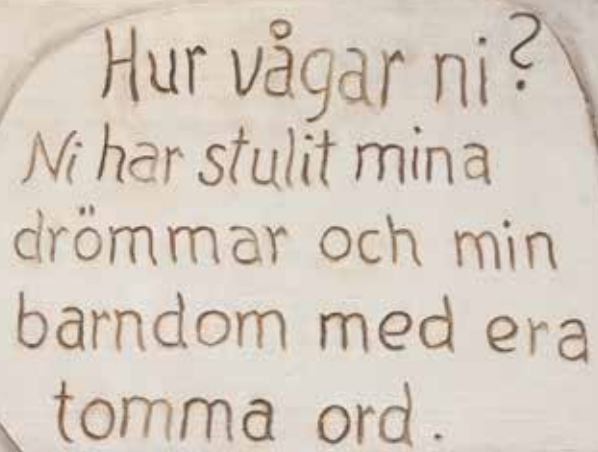 Hur vågar ni?
Ni har stulit mina
drömmar och min
barndom med era
tomma ord.